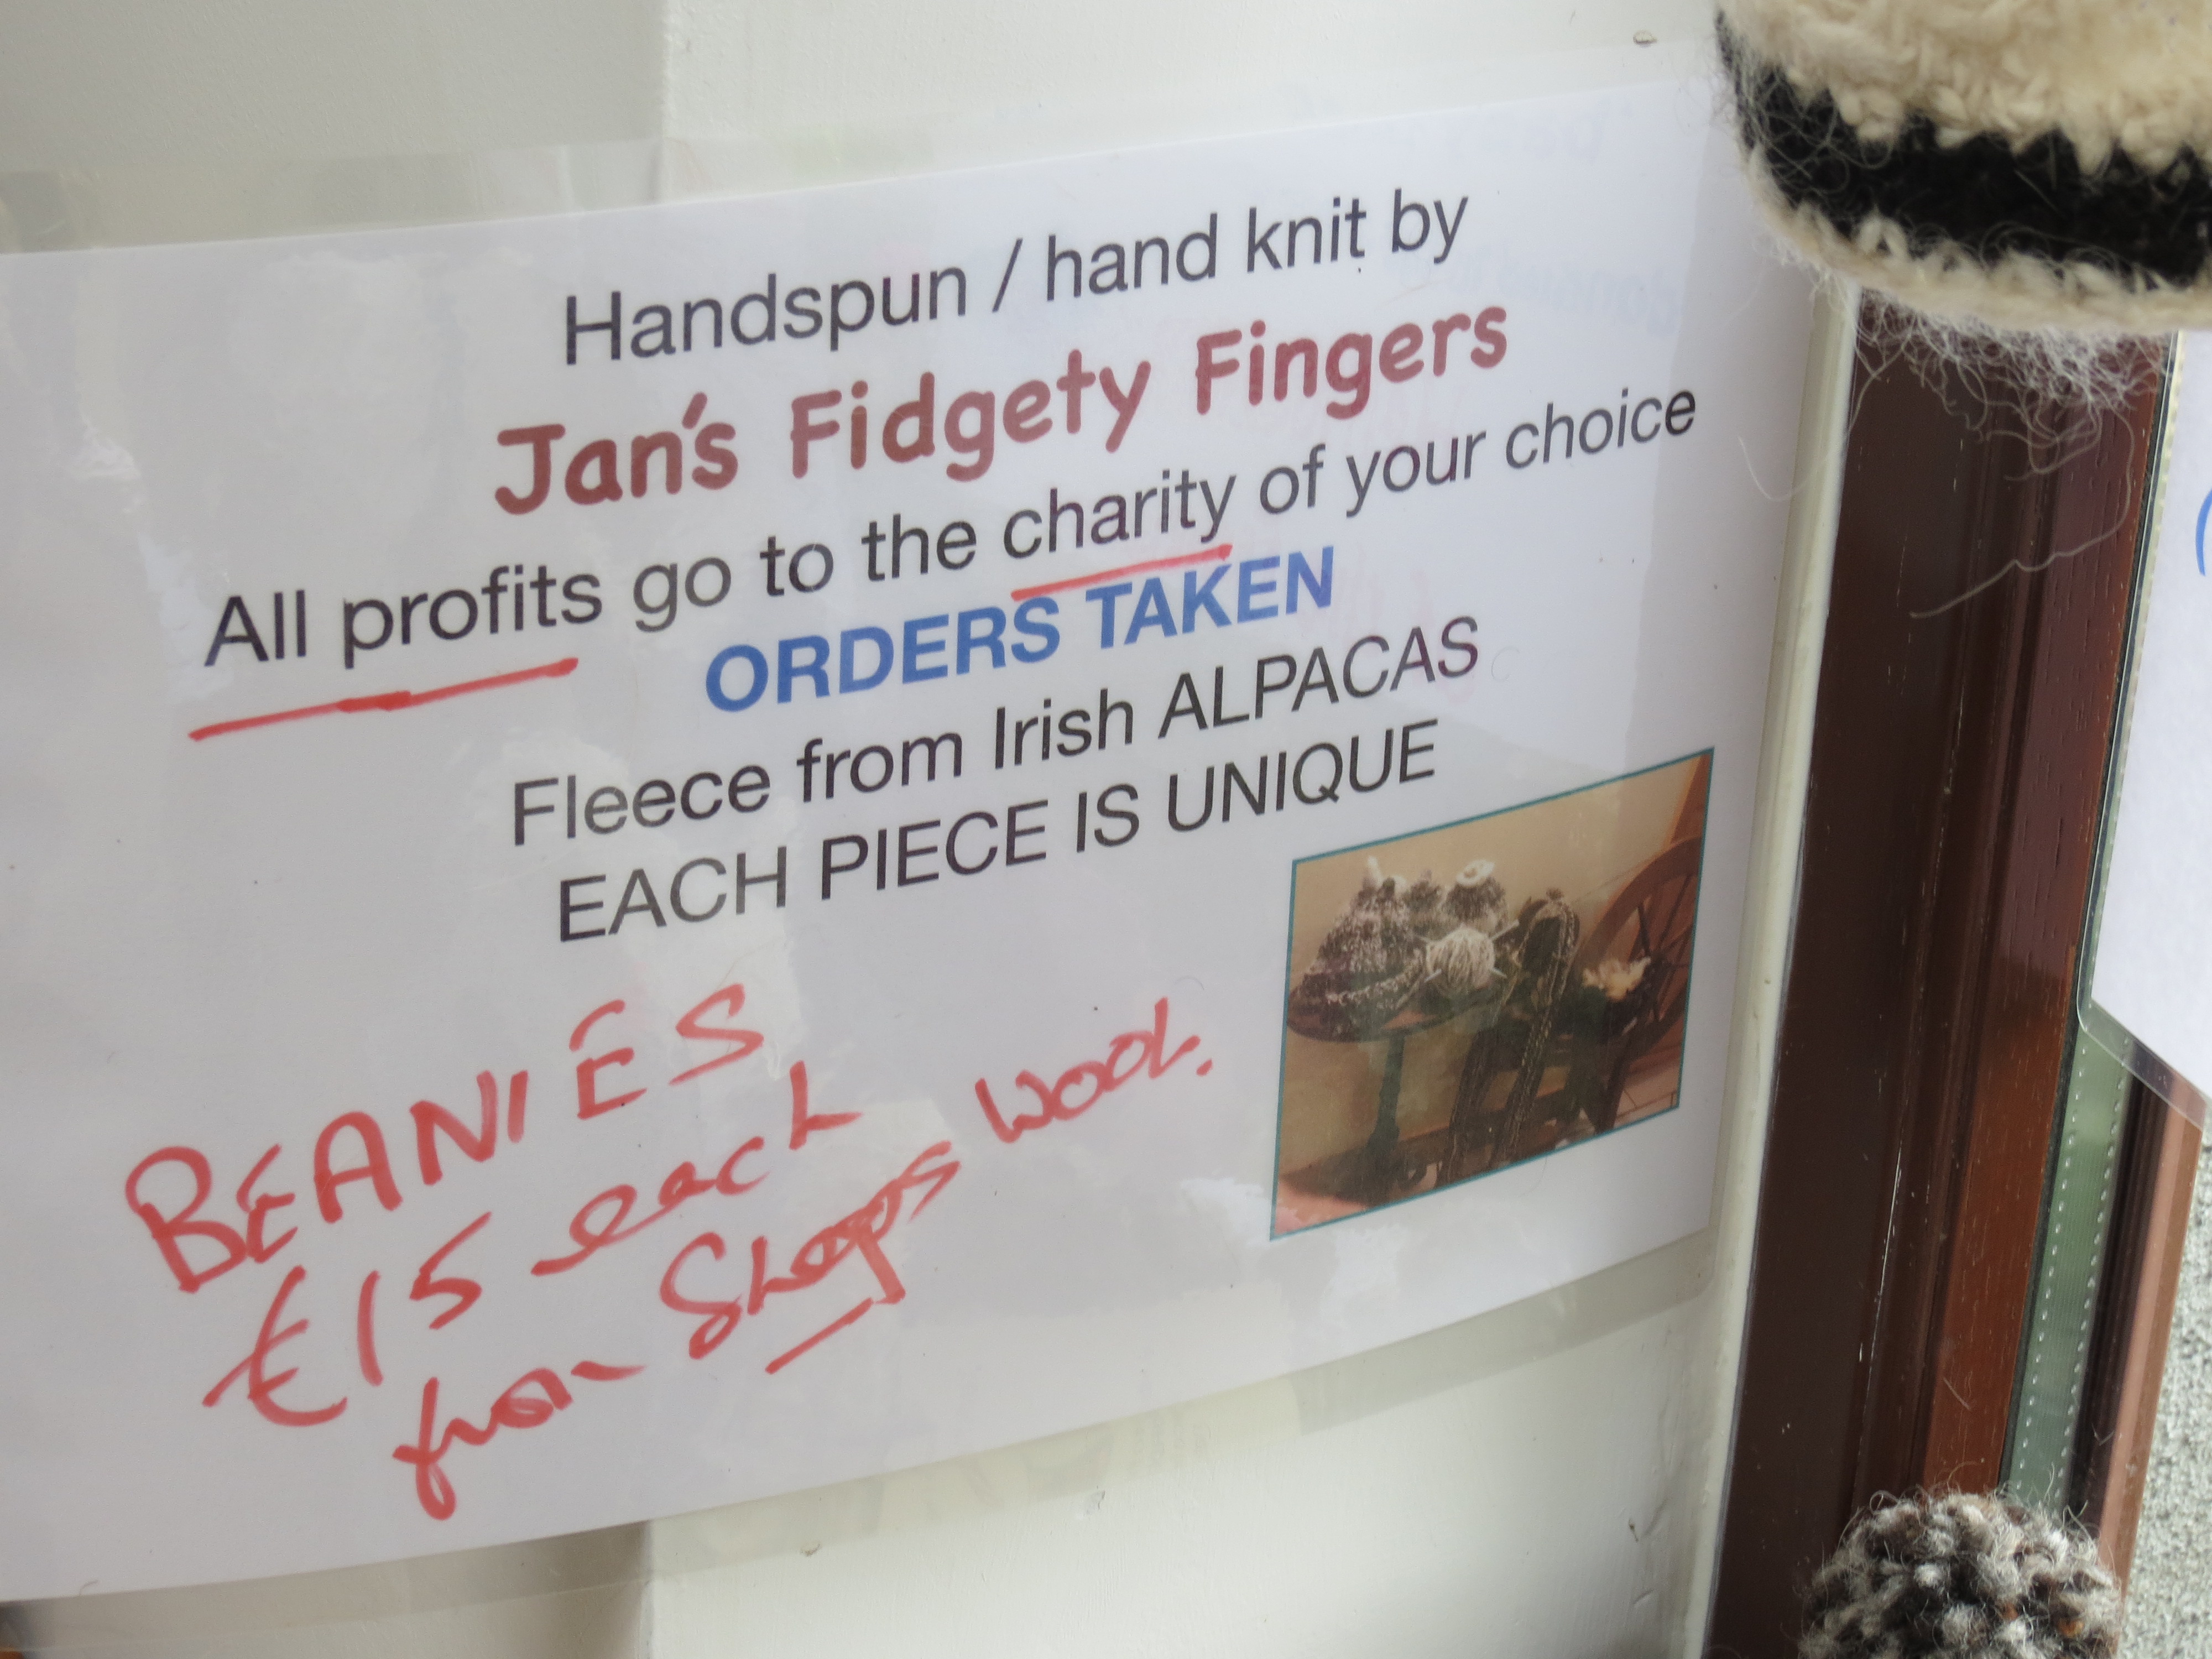 Handspun / hand knit by
Jan's Fidgety Fingers
All profits go to the charity of your choice
ORDERS TAKEN
Fleece from Irish ALPACAS
EACH PIECE IS UNIQUE
BEANIES
€15 each
from Shops wool.